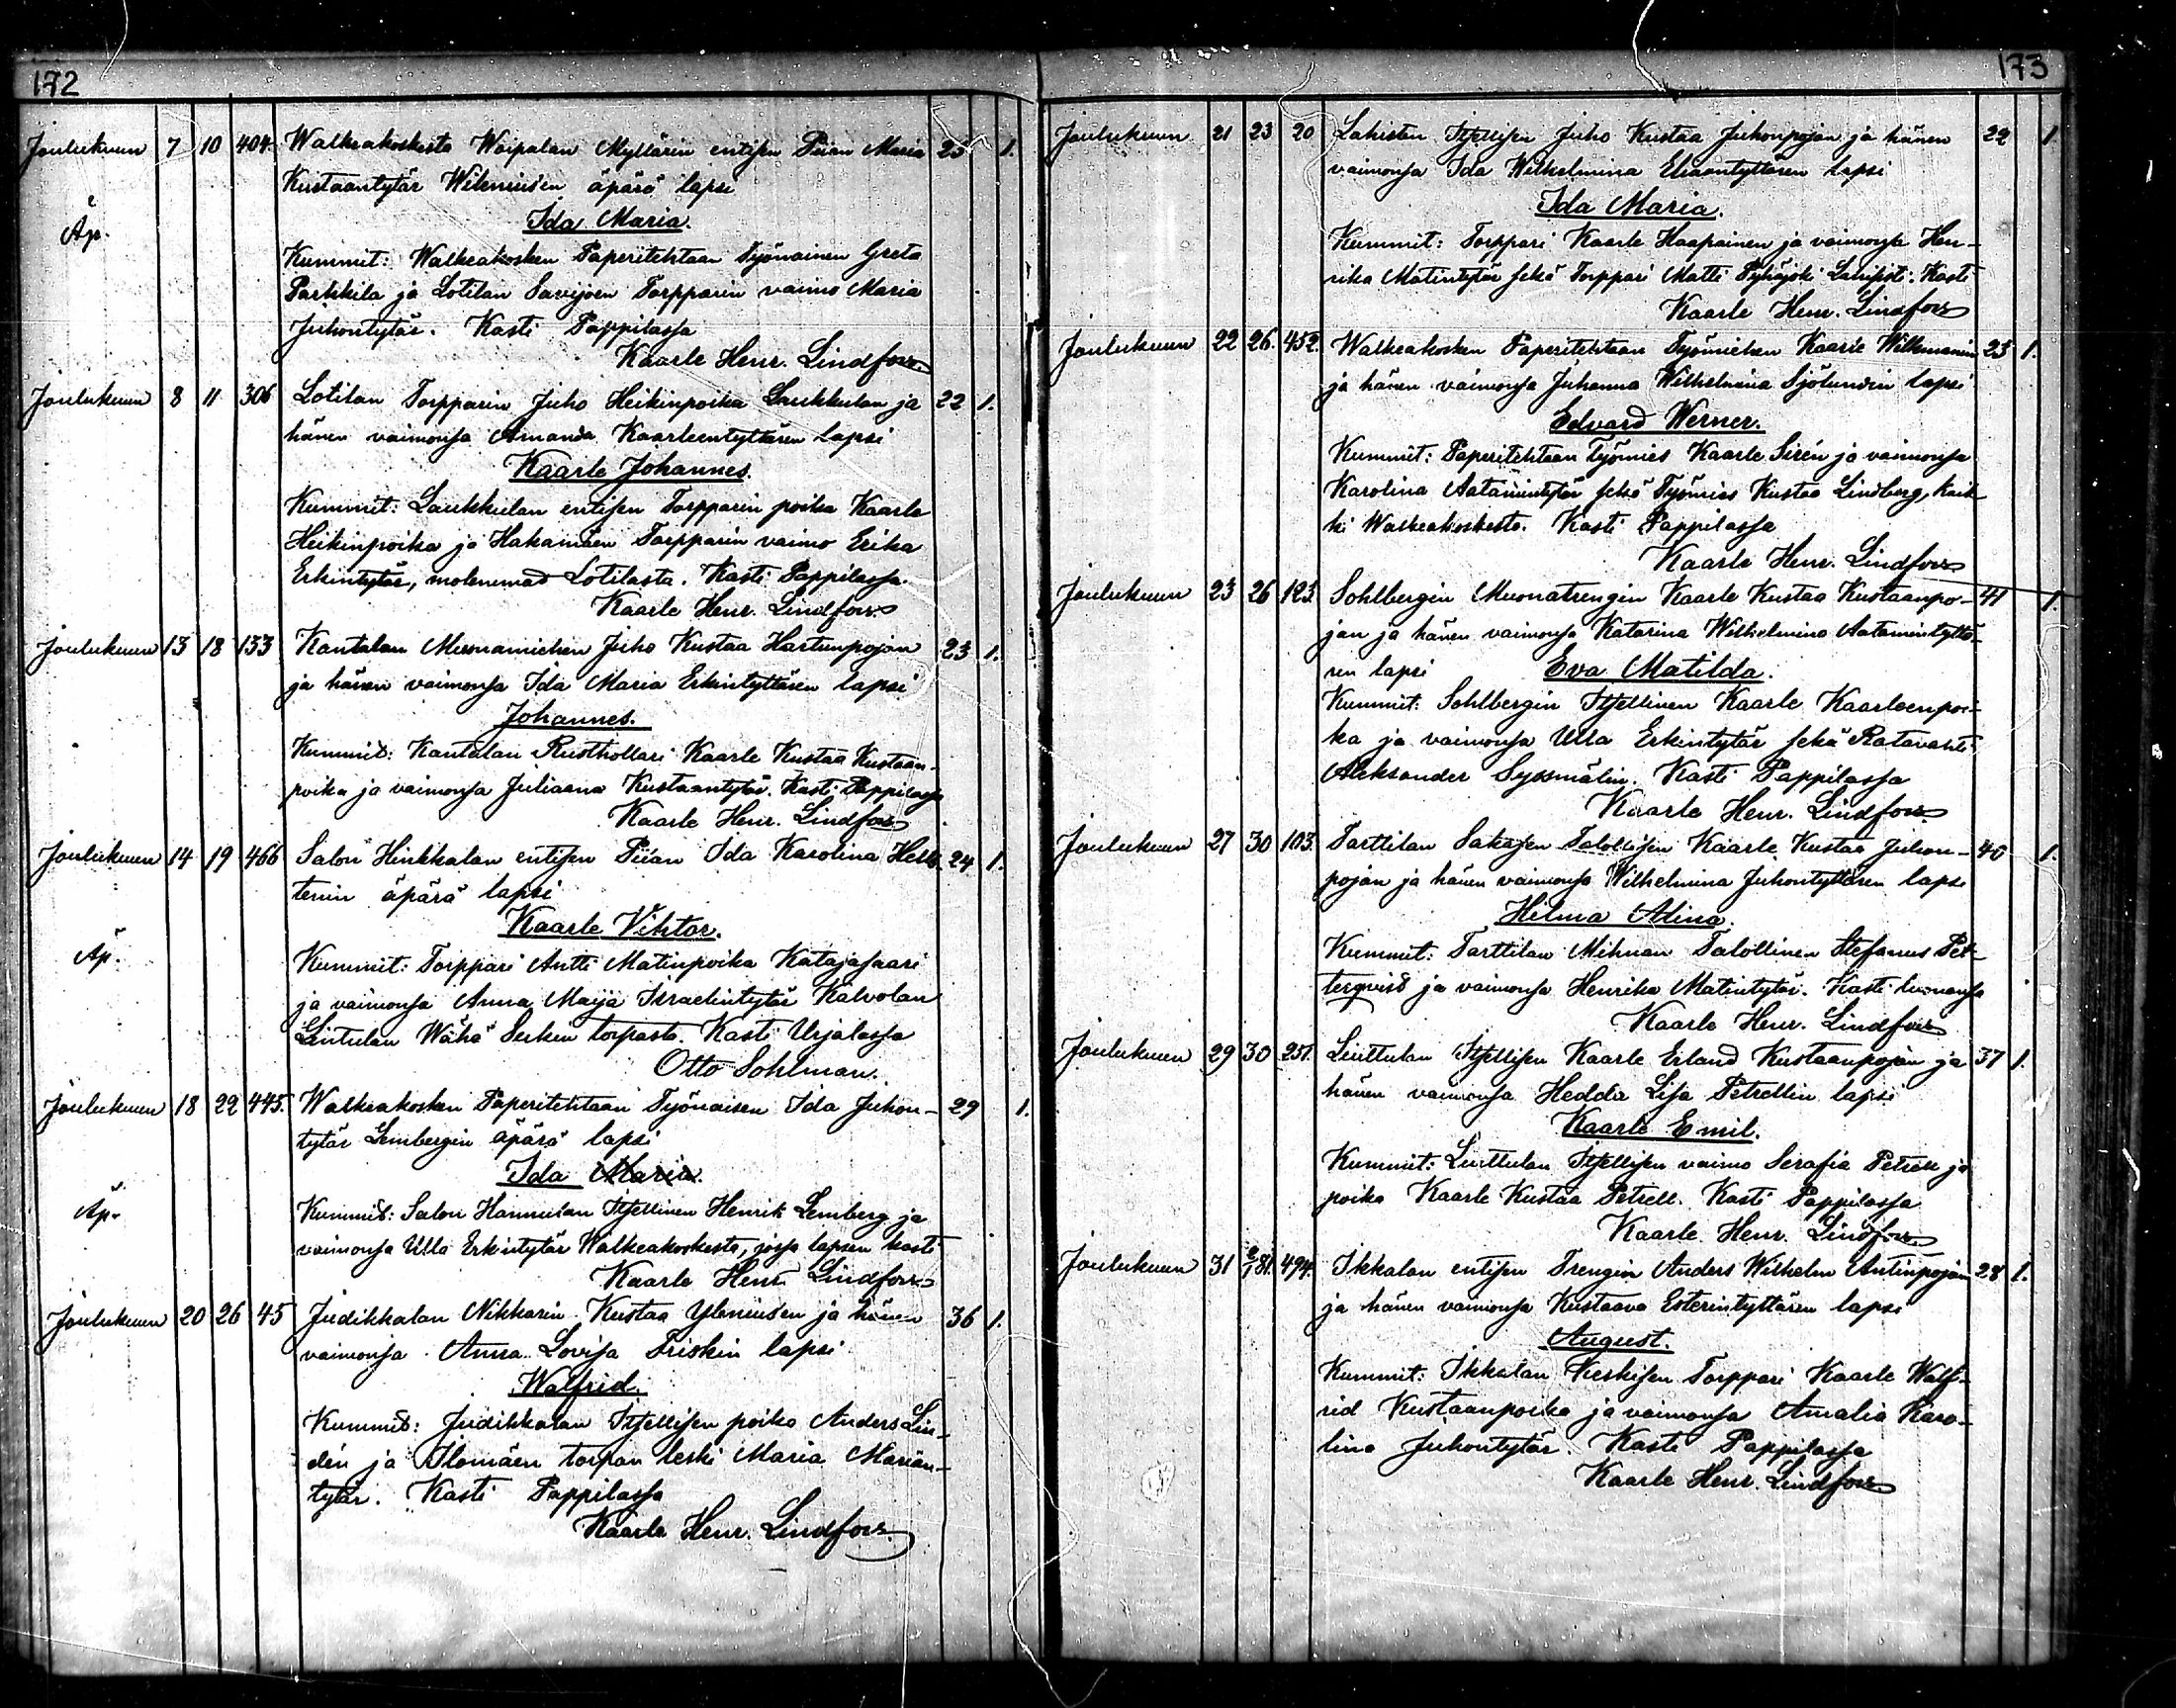 172
Joulukuun 7 10 404. Walkeakoskesta Woipalan Myllärin entisen Piian Maria 25 1.
Kustaantytär Weleniuksen äpärä lapsi
Äp. Ida Maria.
Kummit: Walkeakosken Paperitehtaan Työnainen Greta
Parkkila ja Lotilan Savijoen Torpparin vaimo Maria
Juhontytär. Kasti Pappilassa
Kaarle Henr. Lindfors.
Joulukuun 8 11 306 Lotilan Torpparin Juho Heikinpoika Laukkulan ja 22 1.
hänen vaimonsa Amanda Kaarleentyttären lapsi
Kaarle Johannes.
Kummit: Laukkulan entisen Torpparin poika Kaarle
Heikinpoika ja Hakamäen Torpparin vaimo Erika
Erkintytär, molemmad Lotilasta. Kasti Pappilassa.
Kaarle Henr. Lindfors
Joulukuun 13 18 133 Kantalan Muonamiehen Juho Kustaa Hartunpojan 23 1.
ja hänen vaimonsa Ida Maria Erkintyttären lapsi
Johannes.
Kummid: Kantalan Rusthollari Kaarle Kustaa Kustaan-
poika ja vaimonsa Juliaana Kustaantytär. Kasti Pappilassa
Kaarle Henr. Lindfors
Joulukuun 14 19 466 Salon Hinkkalan entisen Piian Ida Karolina Hells- 24 1.
tenin äpärä lapsi
Kaarle Vihtor.
Äp. Kummit: Torppari Antti Matinpoika Katajasaari
ja vaimonsa Anna Maija Israelintytär Kalvolan
Lintulan Wähä Serken torpasta. Kasti Urjalassa
Otto Sohlman.
Joulukuun 18 22 445. Walkeakosken Paperitehtaan Työnaisen Ida Juhon- 29 1.
tytär Lembergin äpärä lapsi
Ida Maria.
Äp. Kummid: Salon Hannulan Itsellinen Henrik Lemberg ja
vaimonsa Ulla Erkintytär Walkeakoskesta, jossa lapsen kasti
Kaarle Henr. Lindfors
Joulukuun 20 26 45 Judikkalan Nikkarin Kustaa Yleniuksen ja hänen 36 1.
vaimonsa Anna Lovisa Friskin lapsi
Walfrid.
Kummid: Judikkalan Itsellisen poika Anders Lin-
dén ja Ilomäen torpan leski Maria Marian-
tytär. Kasti Pappilassa
Kaarle Henr. Lindfors.
173
Joulukuun 21 23 20 Lahisten Itsellisen Juho Kustaa Juhonpojan ja hänen 22 1
vaimonsa Ida Wilhelmina Eliaantyttären lapsi
Ida Maria.
Kummit: Torppari Kaarle Haapainen ja vaimonsa Hen-
rika Matintytär sekä Torppari Matti Pyhäjoki Lahisist. Kasti
Kaarle Henr. Lindfors
Joulukuun 22 26. 452. Walkeakosken Paperitehtaan Työmiehen Kaarle Wilkmanin 23 1.
ja hänen vaimonsa Juhanna Wilhelmina Sjölundin lapsi
Edvard Werner.
Kummit: Paperitehtaan Työmies Kaarle Sirén ja vaimonsa
Karolina Aatamintytär sekä Työmies Kustaa Lindberg, kaik-
ki Walkeakoskesta. Kasti Pappilassa
Kaarle Henr. Lindfors
Joulukuun 23 26 123. Sohlbergin Muonatrengin Kaarle Kustaa Kustaanpo- 41 1.
jan ja hänen vaimonsa Katarina Wilhelmina Aatamintyttä-
ren lapsi Eva Matilda.
Kummit: Sohlbergin Itsellinen Kaarle Kaarleenpoi-
ka ja vaimonsa Ulla Erkintytär sekä Ratavahti
Aleksander Syssmälin. Kasti Pappilassa
Kaarle Henr. Lindfors
Joulukuun 27 30 103. Tarttilan Sakasen Talollisen Kaarle Kustaa Juhon- 40 1.
pojan ja hänen vaimonsa Wilhelmina Juhontyttären lapsi
Hilma Alina.
Kummit: Tarttilan Mihnan Talollinen Stefanus Pet-
terqvist ja vaimonsa Henrika Matintytär. Kasti luonansa
Kaarle Henr. Lindfors
Joulukuun 29 30 231. Liuttulan Itsellisen Kaarle Erland Kustaanpojan ja 37 1.
hänen vaimonsa Hedda Lisa Petrellin lapsi
Kaarle Emil.
Kummit: Liuttulan Itsellisen vaimo Serafia Petrell ja
poika Kaarle Kustaa Petrell. Kasti Pappilassa
Kaarle Henr. Lindfors
Joulukuun 31 2/1 81. 494. Ikkalan entisen Trengin Anders Wilhelm Antinpojan 28 1.
ja hänen vaimonsa Kustaava Esterintyttären lapsi
August.
Kummit: Ikkalan Keskisen Torppari Kaarle Walf-
rid Kustaanpoika ja vaimonsa Amalia Karo-
lina Juhontytär. Kasti Pappilassa
Kaarle Henr. Lindfors